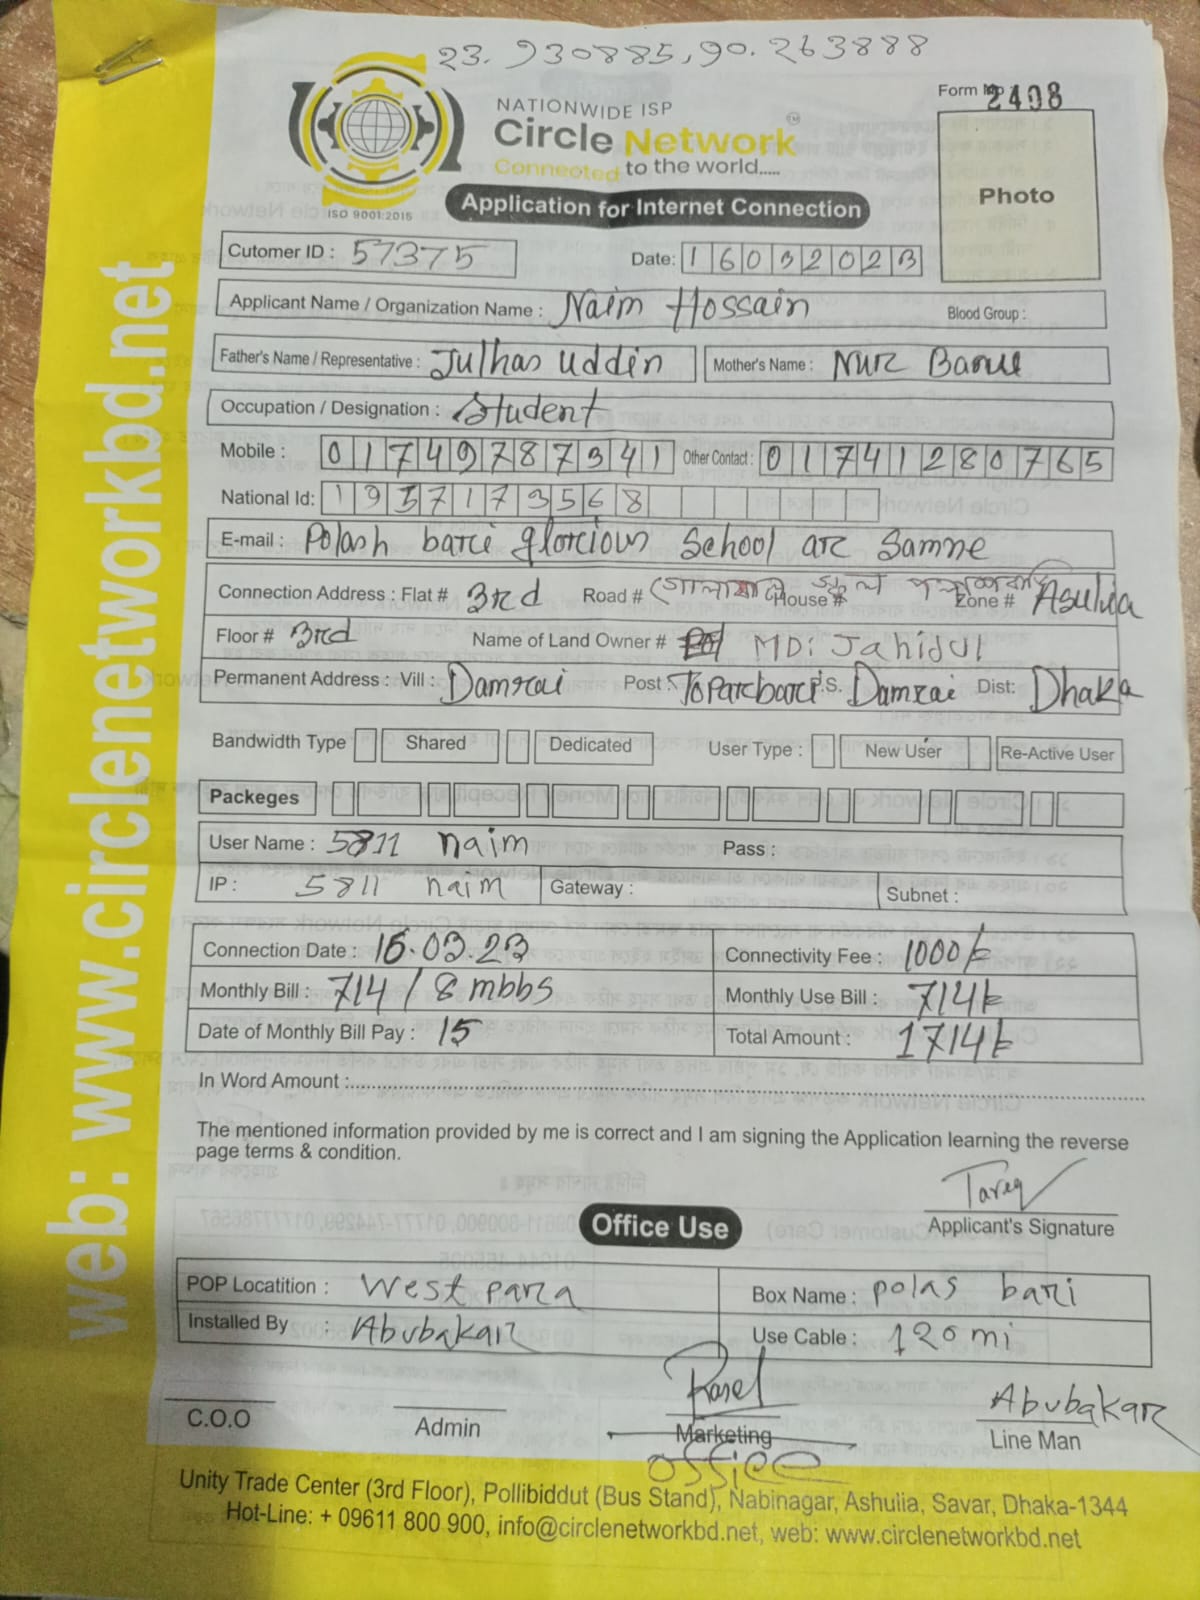 23.930885,90.263888
Form No 2408
NATIONWIDE ISP
Circle Network
TM
Connected to the world.....
ISO 9001:2015
Application for Internet Connection
Photo
Cutomer ID : 57375 Date: 16032023
Applicant Name / Organization Name : Naim Hossain Blood Group :
Father's Name / Representative : Julhas Uddin Mother's Name : Nur Banu
Occupation / Designation : Student
Mobile : 01749787341 Other Contact : 01741280765
National Id: 1957173568
E-mail : Polash bari glorious School ar Samne
Connection Address : Flat # 3rd Road # House # Zone # Asulia
Floor # 3rd Name of Land Owner # MD: Jahidul
Permanent Address : Vill : Damrai Post : Toparbari P.S. Damrai Dist: Dhaka
Bandwidth Type Shared Dedicated User Type : New User Re-Active User
Packeges
User Name : 5811 naim Pass :
IP : 5811 naim Gateway : Subnet :
Connection Date : 15.03.23 Connectivity Fee : 1000/=
Monthly Bill : 714 / 8 mbbs Monthly Use Bill : 714/=
Date of Monthly Bill Pay : 15 Total Amount : 1714/=
In Word Amount :
The mentioned information provided by me is correct and I am signing the Application learning the reverse
page terms & condition.
Tareq
Applicant's Signature
Office Use
POP Locatition : West para Box Name : polas bari
Installed By : Abubakar Use Cable : 120 mi
Rasel Abubakar
C.O.O Admin Marketing Line Man
office
Unity Trade Center (3rd Floor), Pollibiddut (Bus Stand), Nabinagar, Ashulia, Savar, Dhaka-1344
Hot-Line: + 09611 800 900, info@circlenetworkbd.net, web: www.circlenetworkbd.net
web: www.circlenetworkbd.net